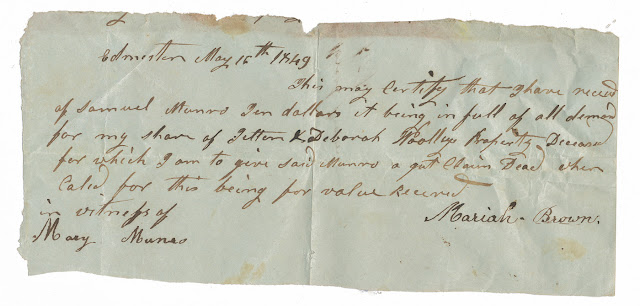 Edmeston May 16th 1849
This may Certify that I have receved
of Samuel Munro Ten dollars it being in full of all demand
for my share of & Deborah Woollys Property Deceased
for which I am to give said Munro a qut Claim Dead when
Caled for this being for value receved
in witness of
Mariah Brown.
Mary Munro